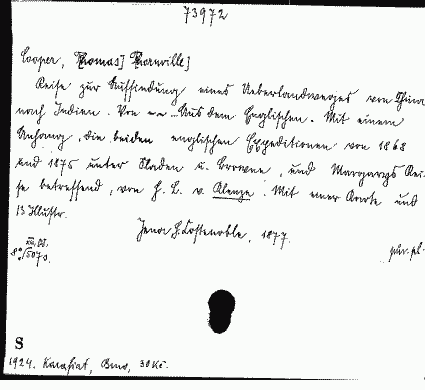 73972
Cooper, T[homas] T[hornville]
Reise zur Auffindung eines Ueberlandweges von China
nach Indien. Von —. Aus dem Englischen. Mit einem
Anhang, die beiden englischen Expeditionen von 1868
und 1875 unter Sladen u. Browne, und Margarys Rei-
se betreffend, von H. L. v. Klenze. Mit einer Karte und
13 Illustr.
Jena H. Costenoble, 1877.
8°
S
1924. Karafiat, Brno, 30 Kč.